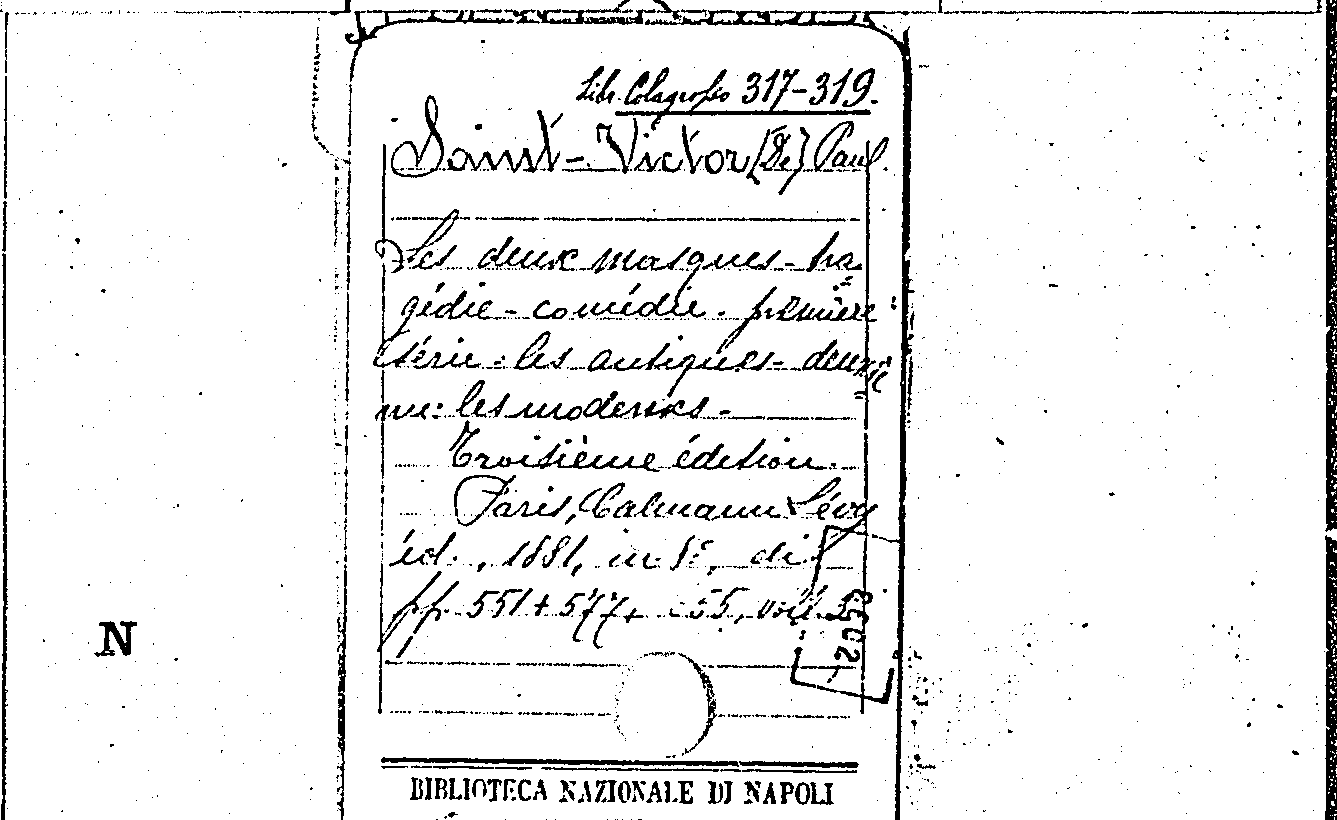 Libr. Colagrosso 317-319.
Saint-Victor (De) Paul.
Les deux masques - tra
gédie - comédie - première
série: les antiques - deuxiè
me: les modernes -
Troisième édition.
Paris, Calmann Lévy
éd., 1881, in 8º, di
pp. 551 + 577 +
N
BIBLIOTECA NAZIONALE DI NAPOLI